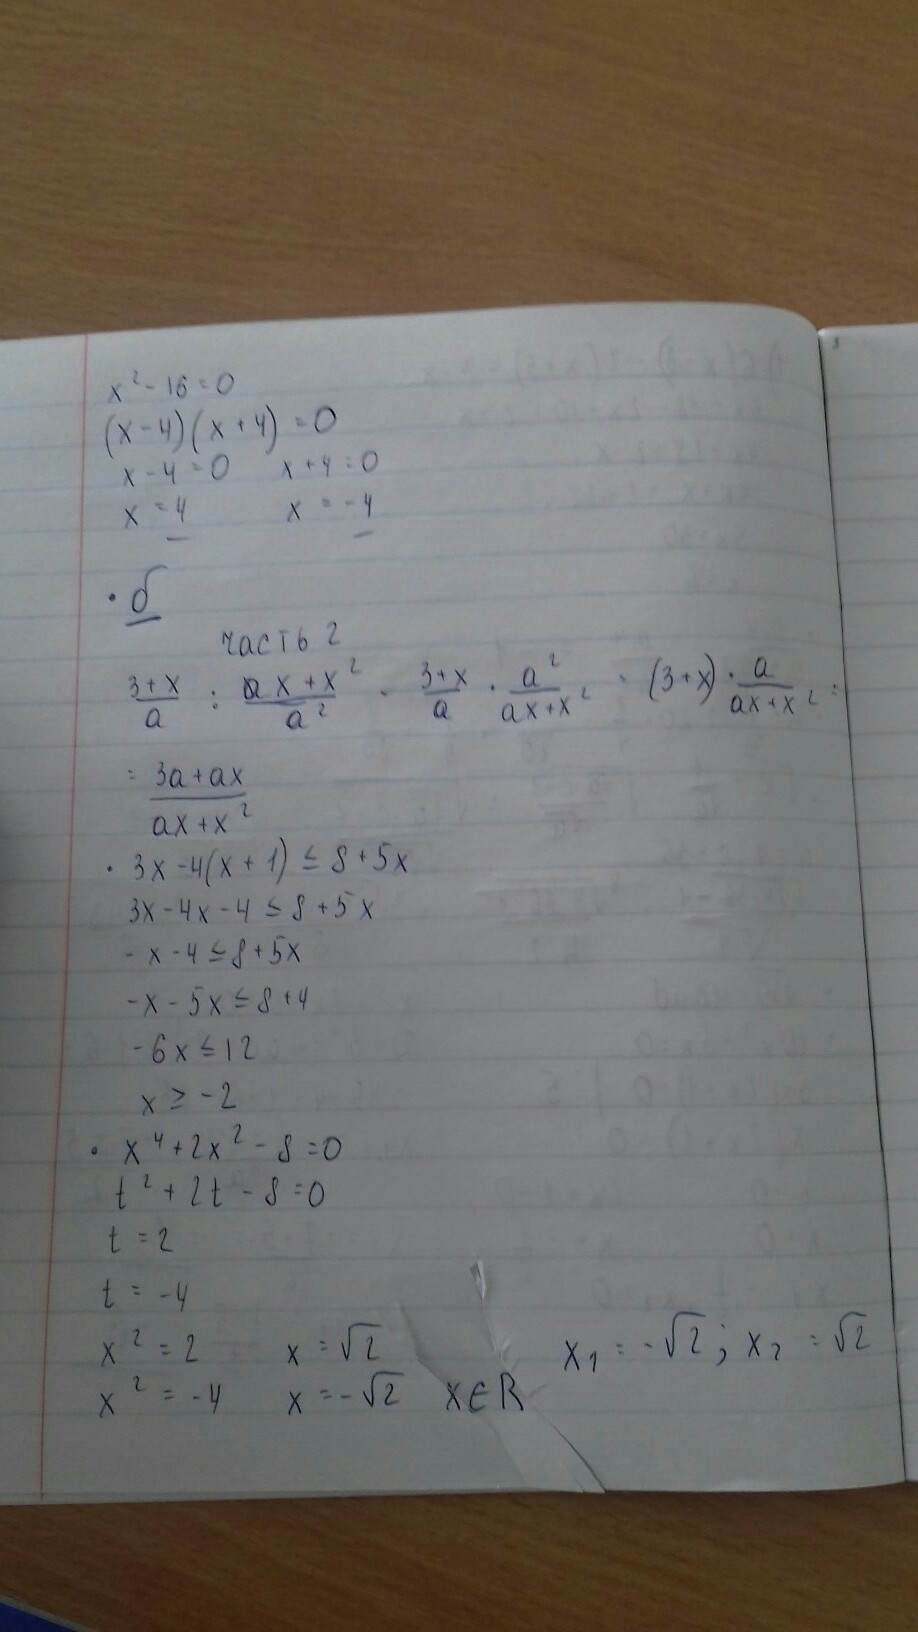 x² - 16 = 0
(x - 4)(x + 4) = 0
x - 4 = 0   x + 4 = 0
x = 4   x = -4
• б
часть 2
3+x/a : ax+x²/a² = 3+x/a · a²/ax+x² = (3+x) · a/ax+x² =
= 3a+ax/ax+x²
• 3x - 4(x + 1) ≤ 8 + 5x
3x - 4x - 4 ≤ 8 + 5x
- x - 4 ≤ 8 + 5x
-x - 5x ≤ 8 + 4
-6x ≤ 12
x ≥ -2
• x⁴ + 2x² - 8 = 0
t² + 2t - 8 = 0
t = 2
t = -4
x² = 2   x = √2   x₁ = -√2 ; x₂ = √2
x² = -4   x = -√2   x∈R